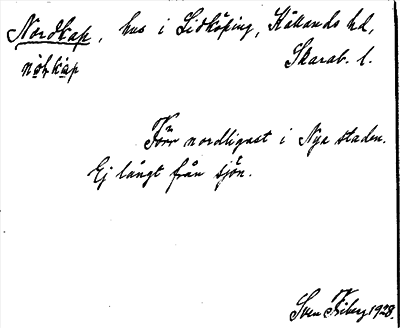 Nordkap, hus i Lidköping, Kållands hd,
Skarab. l.
nὼḱap
Förr nordligast i Nya staden.
Ej långt från sjön.
Sven Friberg 1928.